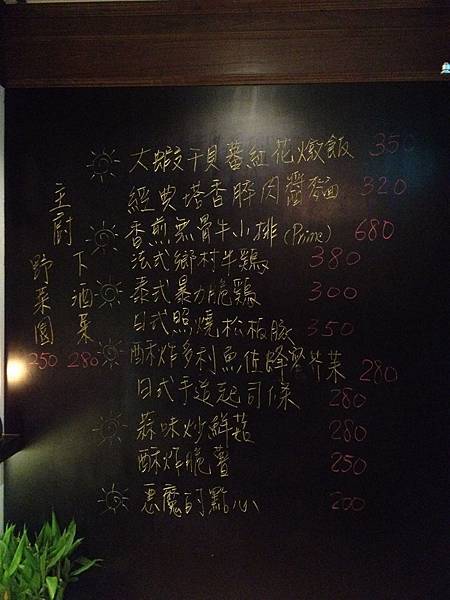 大蝦干貝番紅花燉飯 350
經典塔香碎肉醬麵 320
香煎無骨牛小排(Prime) 680
法式鄉村半鷄 380
泰式暴力脆鷄 300
日式照燒松板豚 350
酥炸多利魚佐蜂蜜芥茉 280
日式手造起司條 280
蒜味炒鮮菇 280
酥炸脆薯 250
惡魔的點心 200
主廚
下酒菜 280
野菜園 250